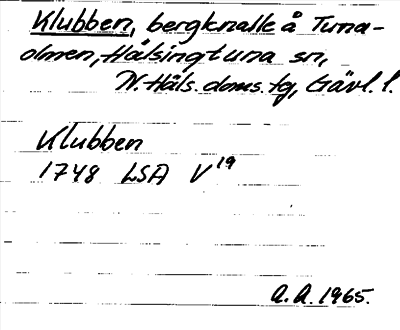 Klubben, bergknalle å Tuna-
olmen, Hälsingtuna sn,
N. Häls. doms. tg, Gävl. l.
Klubben
1748 LSA V19
A.A. 1965.